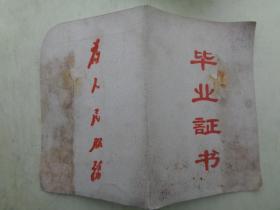 毕业証书
为人民服务